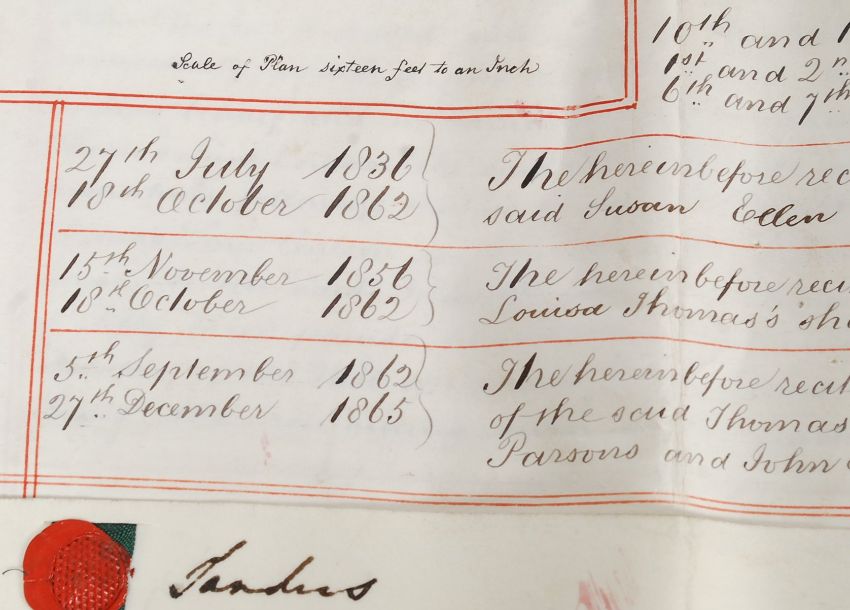 Scale of Plan sixteen feet to an Inch
10th and
1st and 2
6th and 7th
27th July 1836
18th October 1862
The hereinbefore rec
said Susan Ellen
15th November 1856
18th October 1862
The hereinbefore reci
Louisa Thomas's sh
5th September 1862
27th December 1865
The hereinbefore recit
of the said Thomas
Parsons and John